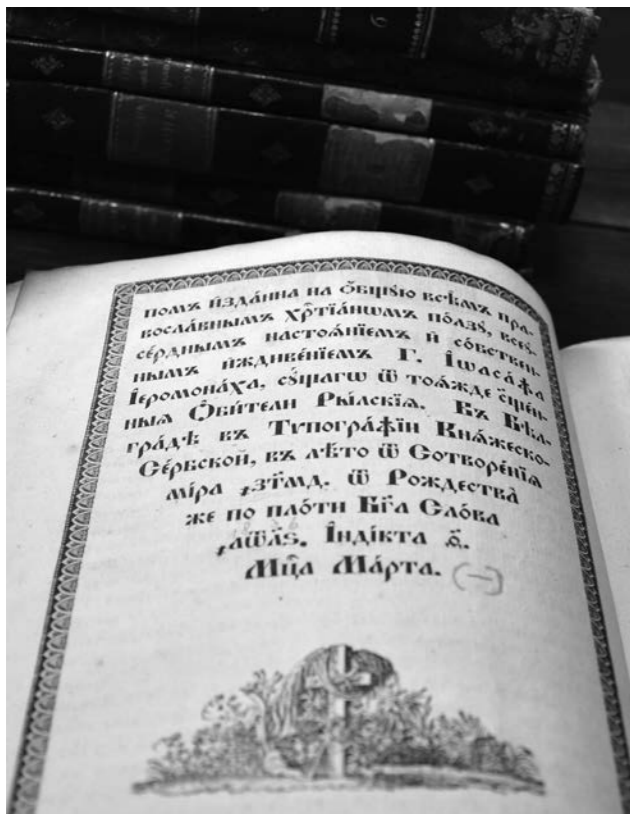 помъ и҆зда́нна на ѻ҆́бщꙋю всѣ̑мъ пра-
восла́внымъ хрⷭ҇тїа́нѡмъ по́лзꙋ, всеꙋ-
се́рднымъ настоѧ́нїемъ и҆ со́бствен-
нымъ и҆ждиве́нїемъ Г. І҆ѡаса́фа
І҆еромона́ха, сꙋ́щагѡ ѿ тоѧ́жде сщ҃е́н-
ныѧ Ѻ҆би́тели Ры́лскїѧ. Въ Бѣ́л-
гра́дѣ въ Тѷпогра́фїи Кнѧ́жеско-
Се́рбской, въ лѣ́то ѿ Сотворе́нїѧ
мі́ра ҂зт҃мд. ѿ Рождества̀
же по пло́ти Бг҃а Сло́ва
҂аѿл҃ѕ. І҆нді́кта ѳ҃.
Мц҇а Ма́рта. (—)